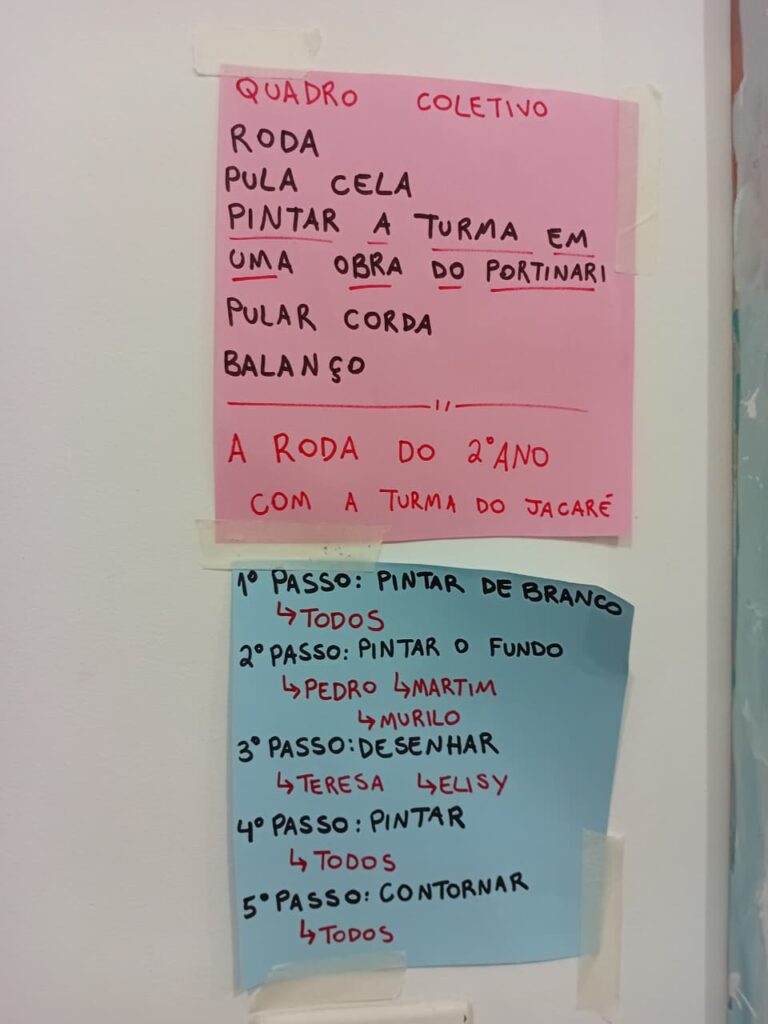 QUADRO COLETIVO
RODA
PULA CELA
PINTAR A TURMA EM
UMA OBRA DO PORTINARI
PULAR CORDA
BALANÇO
A RODA DO 2° ANO
COM A TURMA DO JACARÉ
1º PASSO: PINTAR DE BRANCO
↳TODOS
2º PASSO: PINTAR O FUNDO
↳PEDRO ↳MARTIM
↳MURILO
3º PASSO: DESENHAR
↳TERESA ↳ELISY
4º PASSO: PINTAR
↳TODOS
5º PASSO: CONTORNAR
↳TODOS